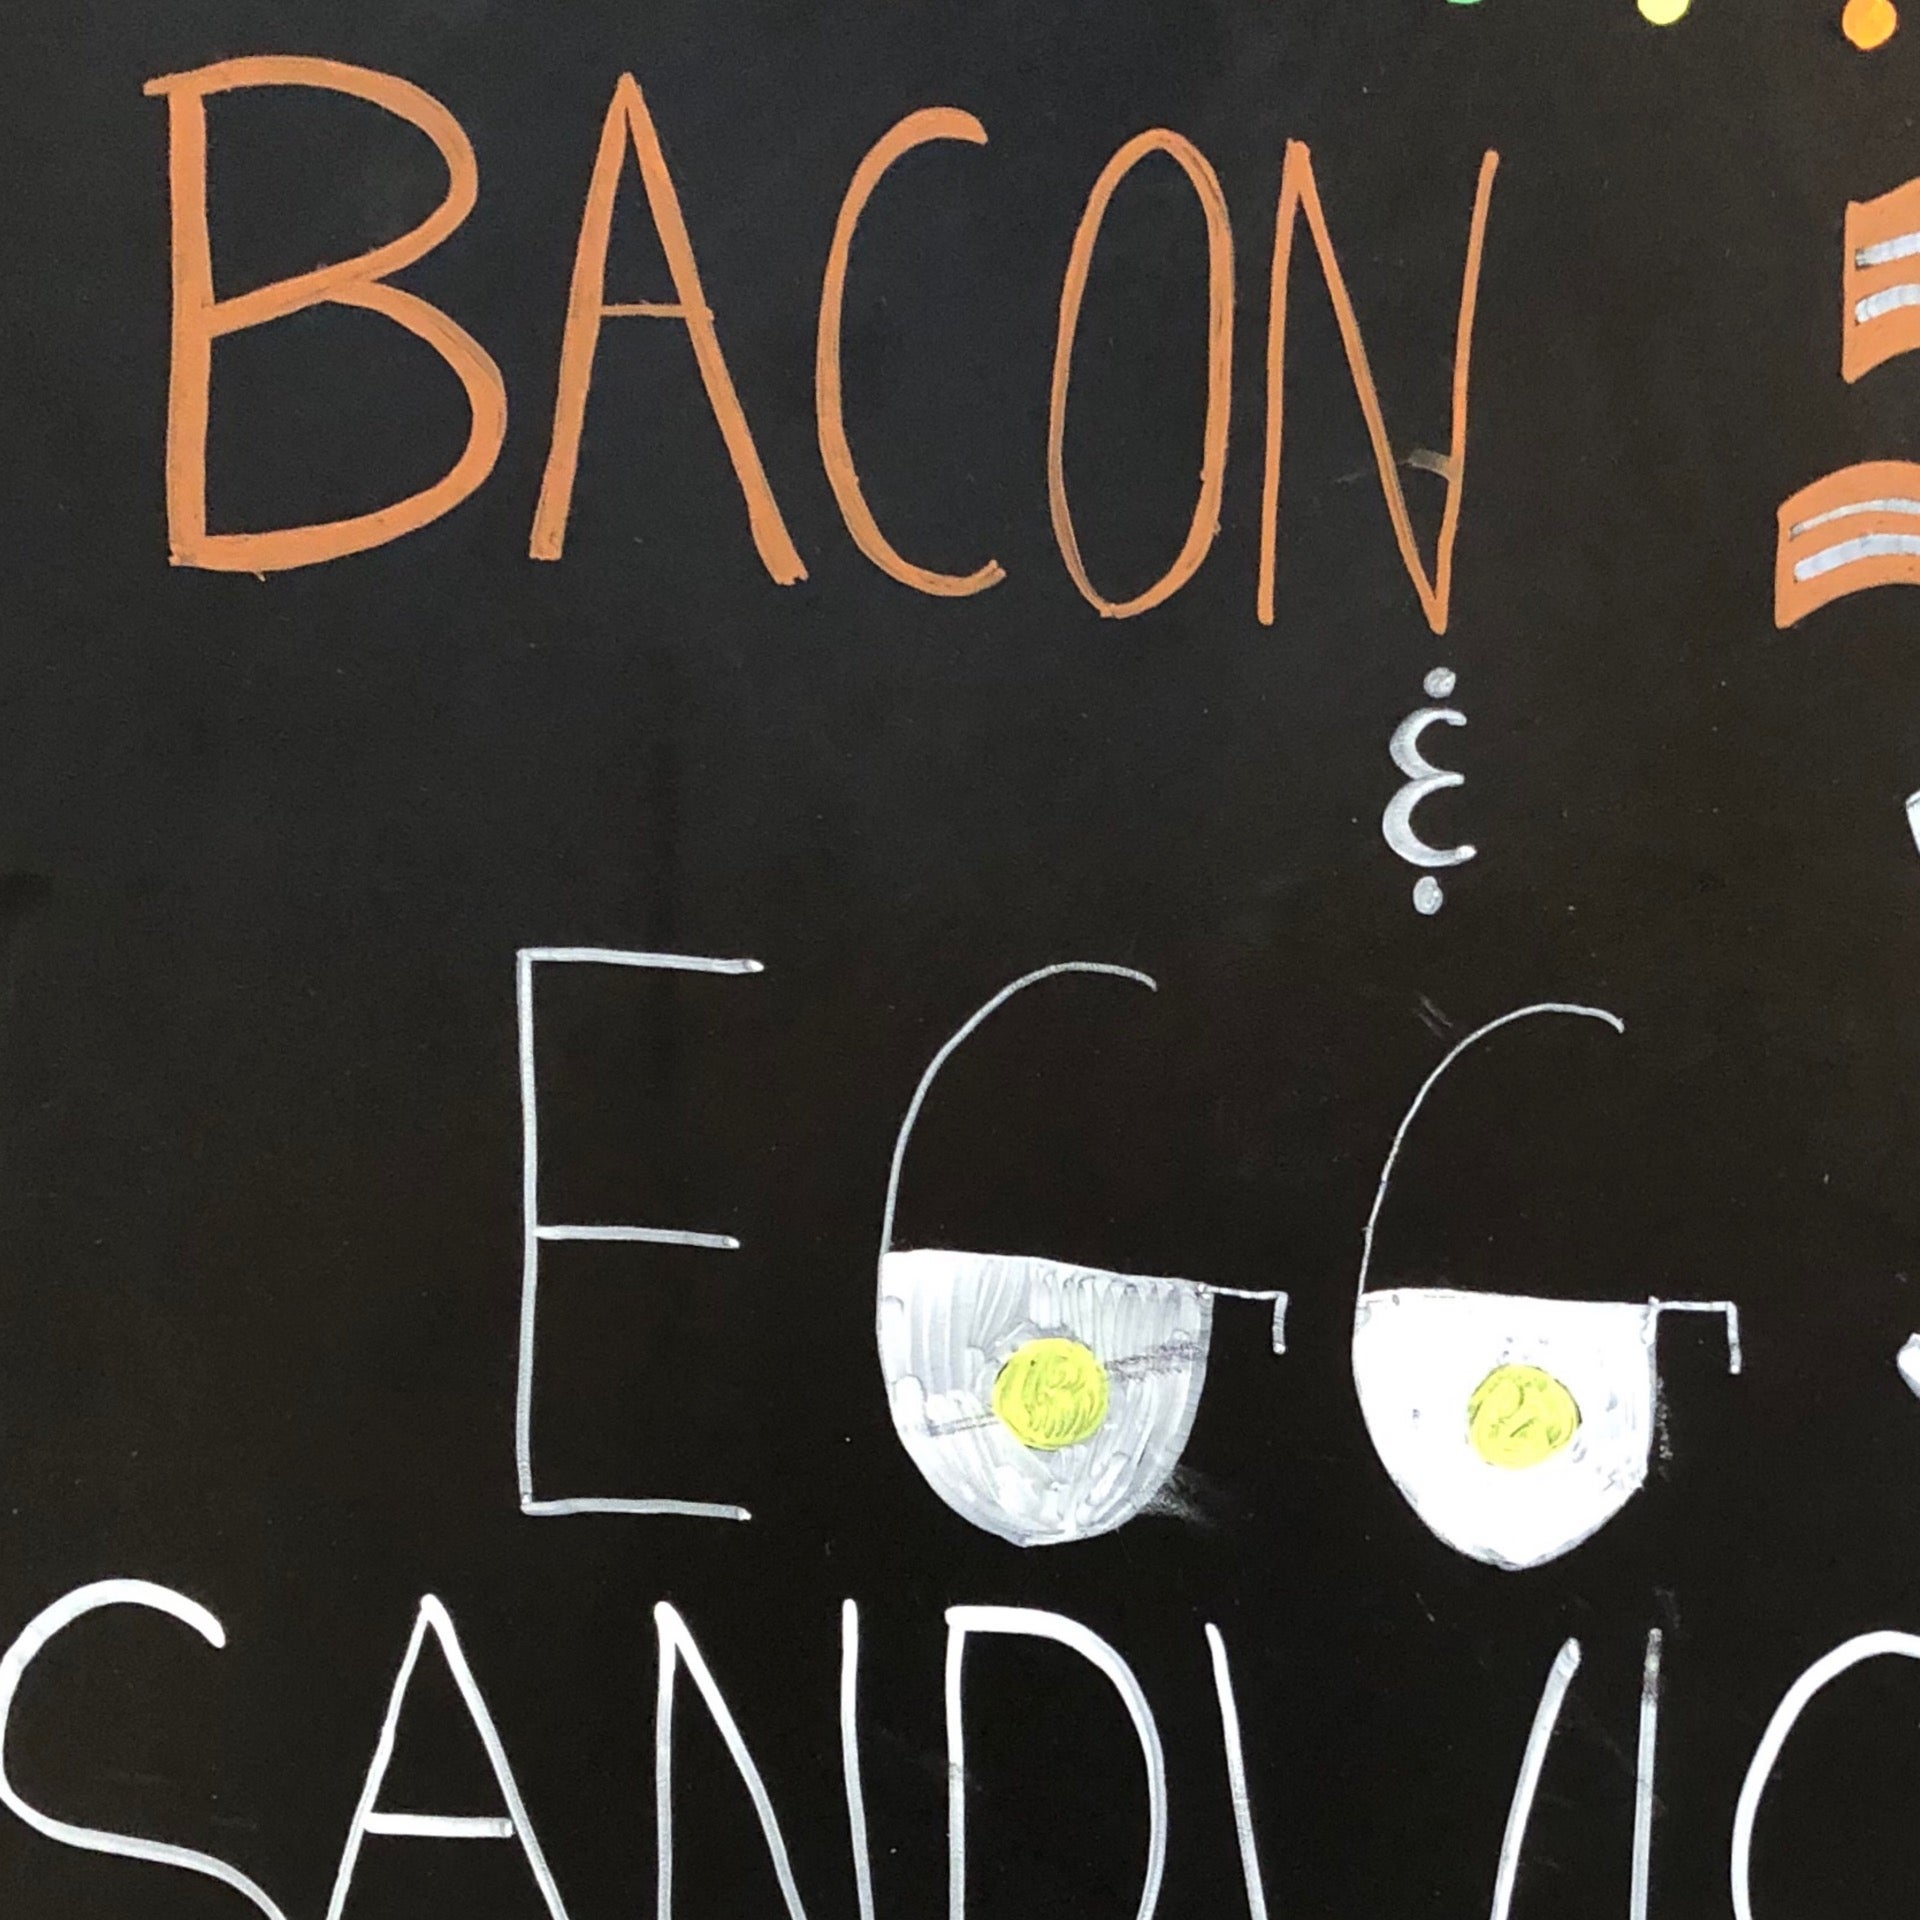 BACON
&
EGG
SANDWIC